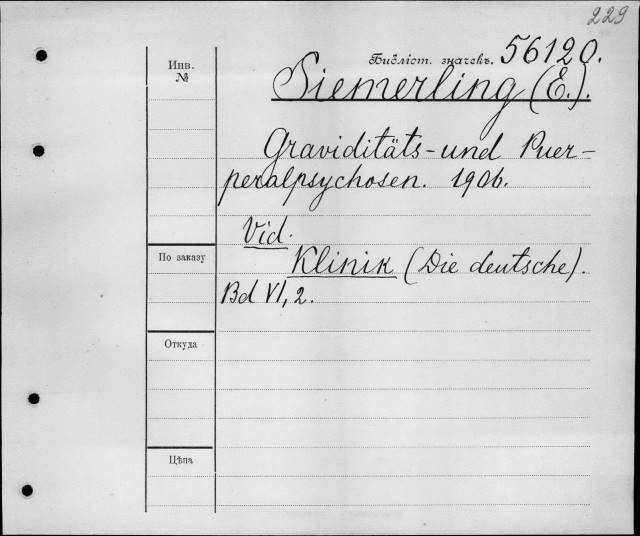 229
Инв. №
Библіот. значекъ. 56120.
Siemerling (E.).
Graviditäts- und Puer-
peralpsychosen. 1906.
Vid.
Klinik (Die deutsche).
Bd VI, 2.
По заказу
Откуда
Цѣна